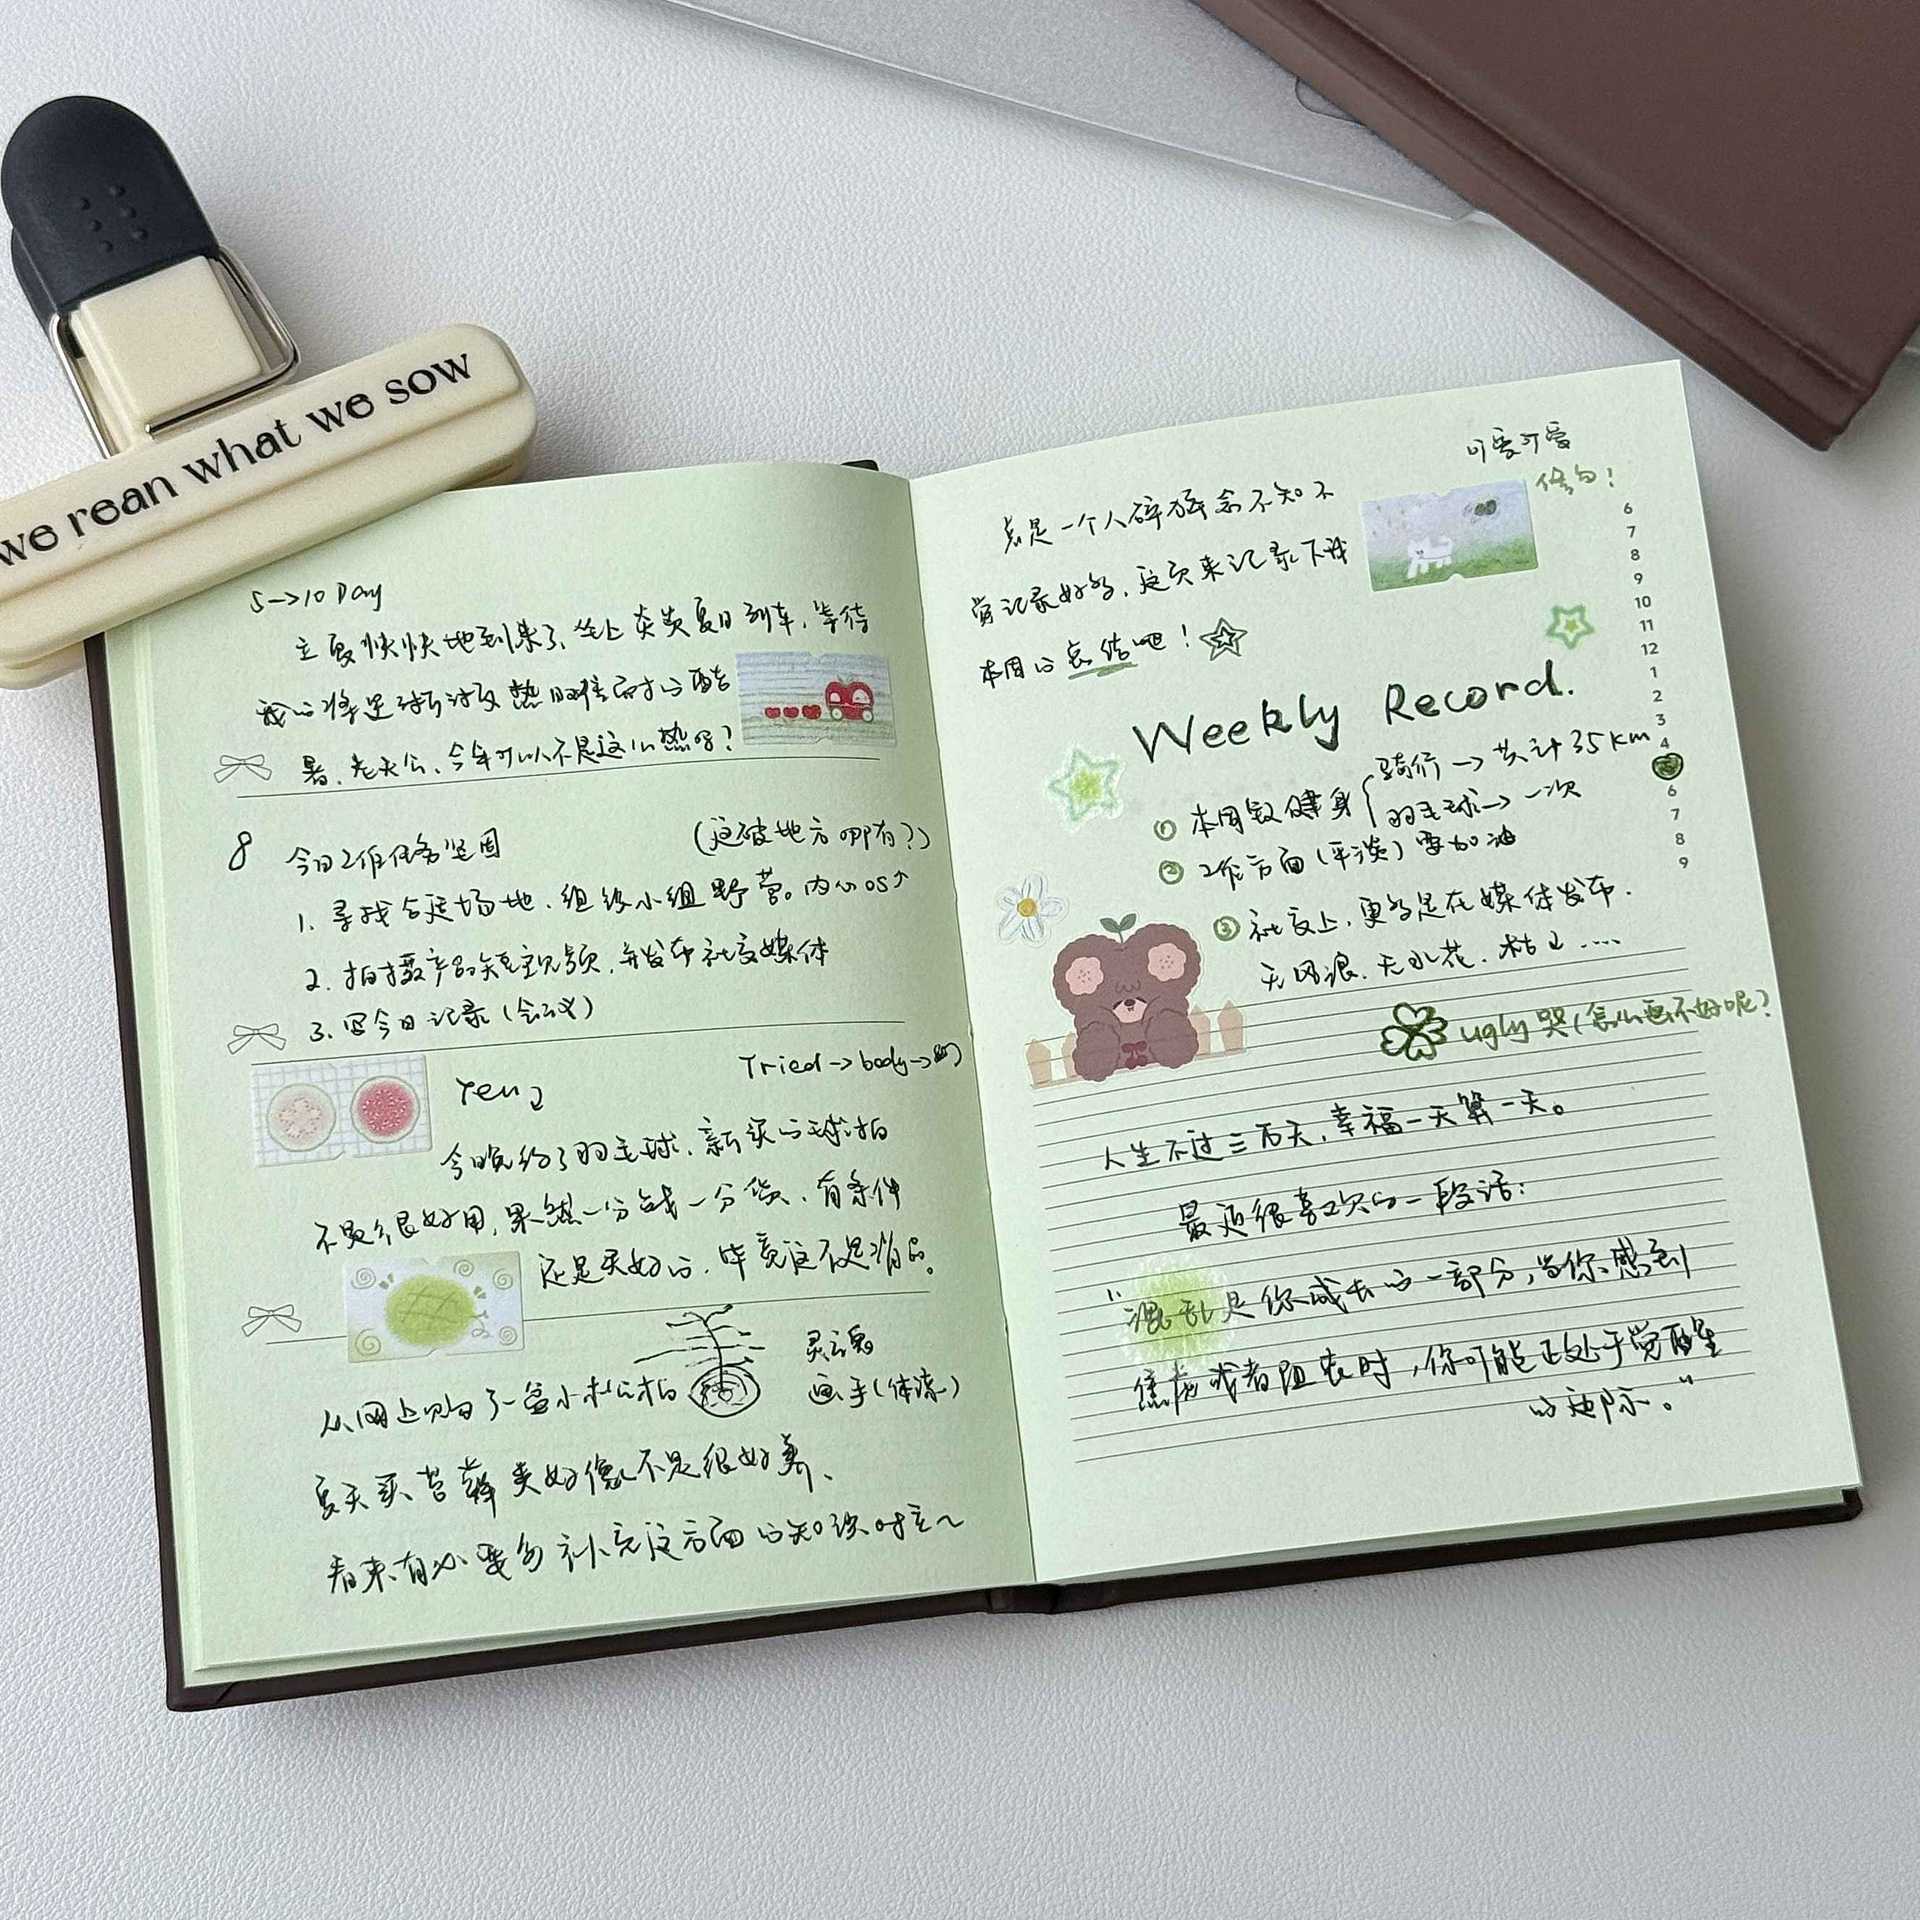 we rean what we sow
5→10 Day
立夏快快地到来了,坐上炎炎夏日列车,等待
我的将是渐渐热的酷
暑,老天公,今年可以不是这么热吗?
8 今日工作任务 (这破地方哪有?)
1. 寻找合适场地,组织小组野营。内心OS↑
2. 拍摄产品短视频,并发布社交媒体
3. 写今日记录(会议)
Tried→body→的
今晚约了羽毛球,新买的球拍
不是很好用,果然一分钱一分货,有条件
还是买好的,毕竟这不是消品。
灵魂
画手(体谅)
从网上购了一盆小松柏
夏天买苔藓类好像不是很好养、
看来有必要多补充这方面的知识对立~
可爱可爱
总是一个人碎碎念不知不
觉记录好多,这页来记录下我
本周的总结吧!
Weekly Record.
① 本周致健身 骑行→共计35km
羽毛球→一次
② 工作方面(平淡)要加油
③ 社交上,更多是在媒体发布.
无风浪.无水花.枯
ugly 哭(怎么画不好呢?
人生不过三万天,幸福一天算一天。
最近很喜欢的一段话:
"混乱是你成长的一部分,当你感到
焦虑或者沮丧时,你可能正处于觉醒
的边际。"
6
7
8
9
10
11
12
1
2
3
4
6
7
8
9